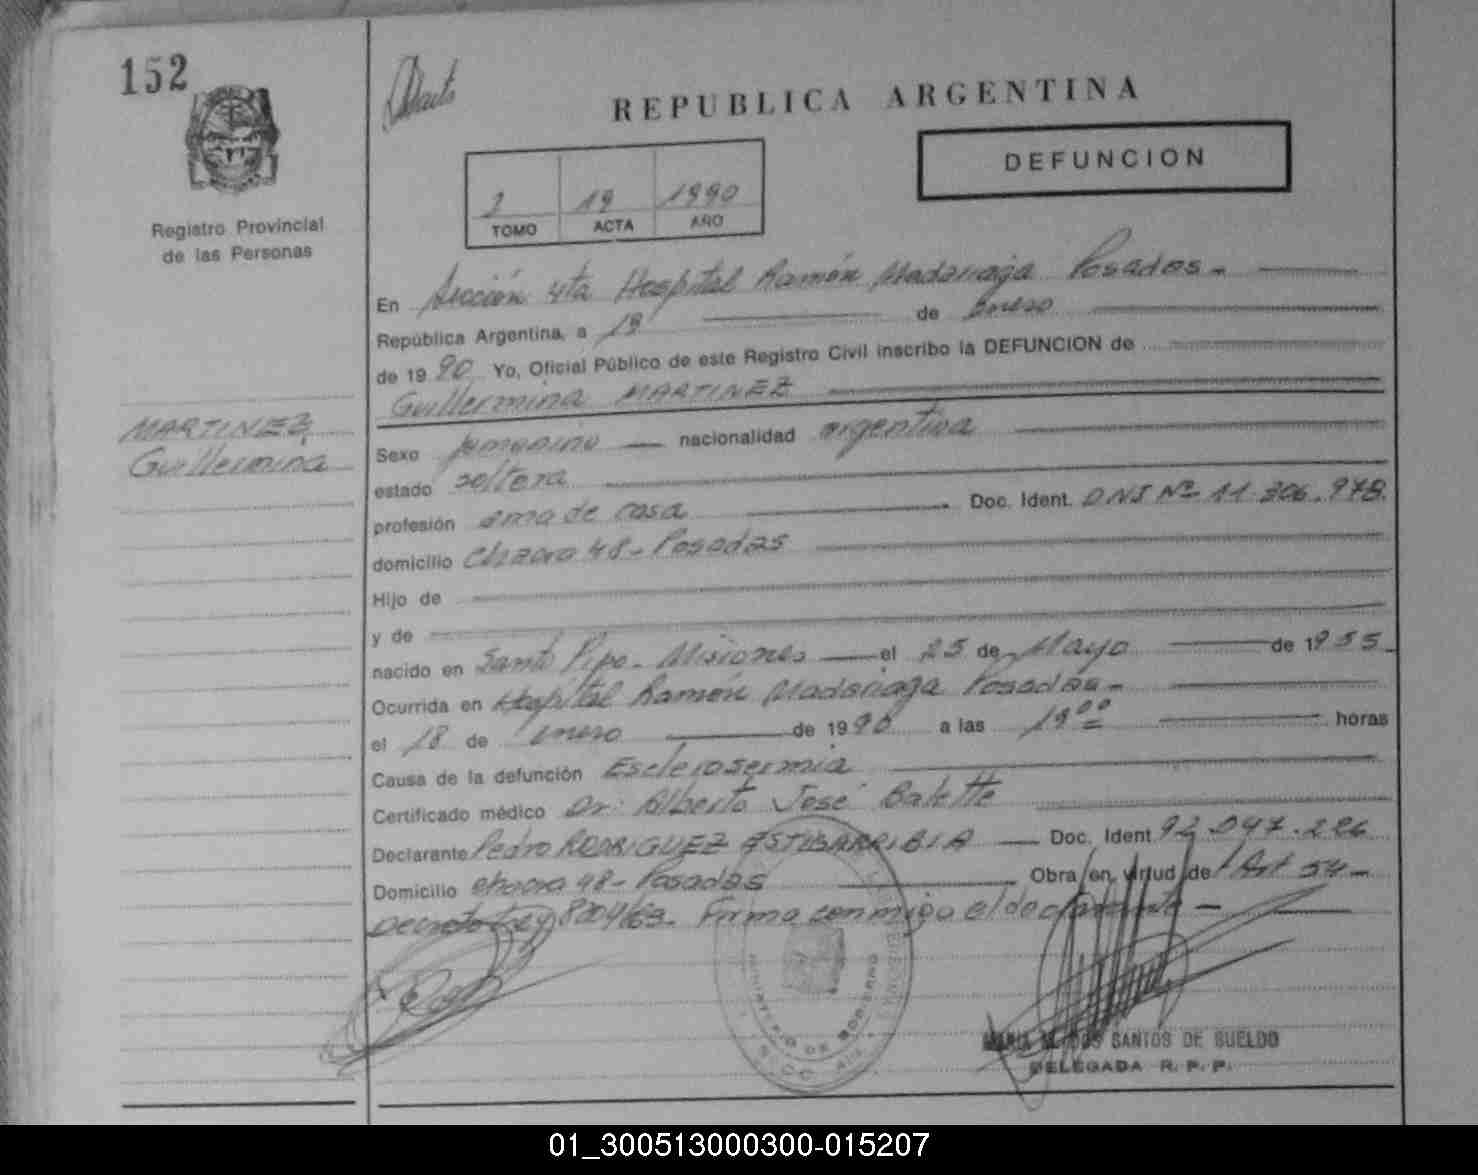 152
Adulto
REPUBLICA ARGENTINA
DEFUNCION
2 19 1990
TOMO ACTA AÑO
Registro Provincial
de las Personas
En Sección 4ta Hospital Ramón Madariaga Posadas.-
República Argentina, a 19 de enero
de 1990 Yo, Oficial Público de este Registro Civil inscribo la DEFUNCION de
Guillermina MARTINEZ
MARTINEZ
Guillermina
Sexo femenino nacionalidad argentina
estado soltera
profesión ama de casa Doc. Ident. DNI Nº 11.306.978.
domicilio Chacra 48 - Posadas
Hijo de
y de
nacido en Santo Pipo - Misiones el 25 de Mayo de 1955.
Ocurrida en Hospital Ramón Madariaga Posadas.-
el 18 de enero de 1990 a las 19ºº horas
Causa de la defunción Esclerosermia
Certificado médico Dr: Alberto José Balette
Declarante Pedro RODRIGUEZ ESTUBARRIBIA Doc. Ident. 92.047.226
Domicilio chacra 48 - Posadas Obra en virtud de Art 54-
Decreto Ley 8204/63. Firma conmigo el declarante -
MINISTERIO DE GOBIERNO
SANTOS DE SUELDO
DELEGADA R. P. P.
01_300513000300-015207